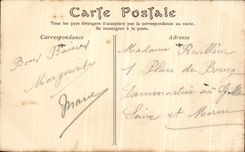 Carte Postale
Tous les pays étrangers n'acceptent pas la correspondance au recto.
Se renseigner à la poste.
Correspondance
Adresse
Bons Baisers
Marguerite
Marie
Madame
1 Place du Bourg
Dammartin en Goële
Seine et Marne